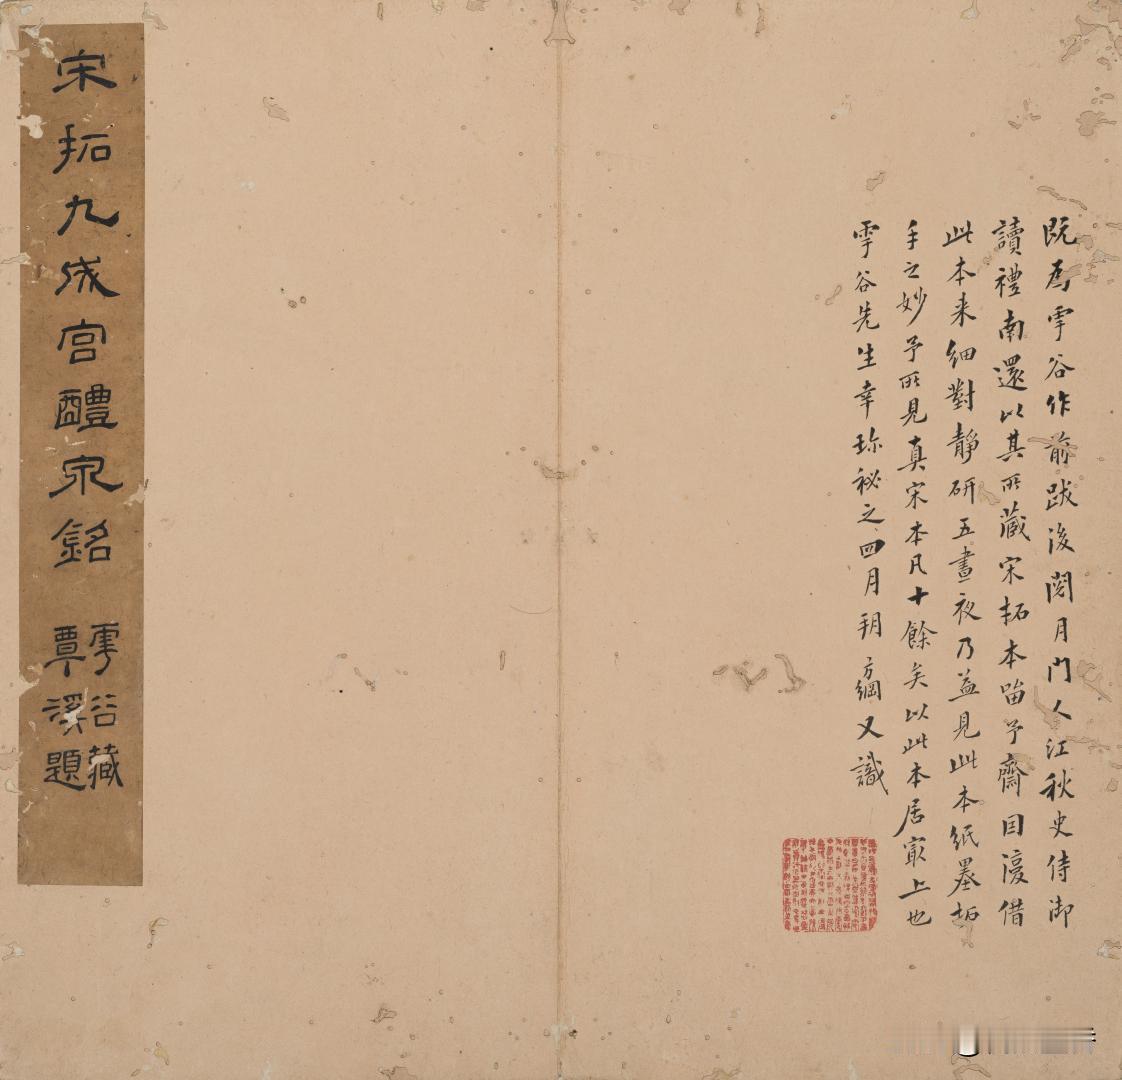 既爲雩谷作前跋後閱月門人江秋史侍御
讀禮南還以其所藏宋拓本留予齋因復借
此本来細對靜研五晝夜乃益見此本紙墨拓
手之妙予所見真宋本凡十餘矣以此本居最上也
雩谷先生幸珎祕之四月朔方綱又識
宋拓九成宮醴泉銘
雩谷藏
覃溪題